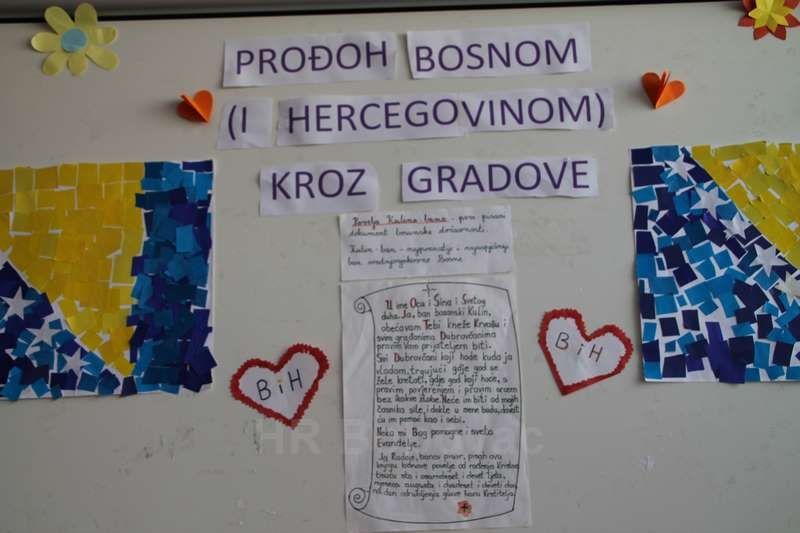 PROĐOH BOSNOM
(I HERCEGOVINOM)
KROZ GRADOVE
Povelja Kulina bana - prvi pisani
dokument bosanske državnosti.
Kulin ban - najpoznatiji i najuspješniji
ban srednjovjekovne Bosne
U ime Oca i Sina i Svetog
duha. Ja, ban bosanski Kulin,
obećavam Tebi kneže Krvašu i
svim građanima Dubrovčanima
pravim Vam prijateljem biti.
Svi Dubrovčani koji hode kuda ja
vladam, trgujući gdje god se
žele kretati, gdje god koji hoće, s
pravim povjerenjem i pravim srcem
bez ikakve zlobe. Neće im biti od mojih
časnika sile, i dokle u mene budu, davat
ću im pomoć kao i sebi.
Neka mi Bog pomogne i sveto
Evanđelje.
Ja Radoje, banov pisar, pisah ovu
knjigu banove povelje od rođenja Kristova
tisuću sto i osamdeset i devet ljeta,
mjeseca augusta i dvadeset i deveti dan,
na dan odrubljenja glave Ivana Krstitelja.
BiH
BiH
HR B
ac